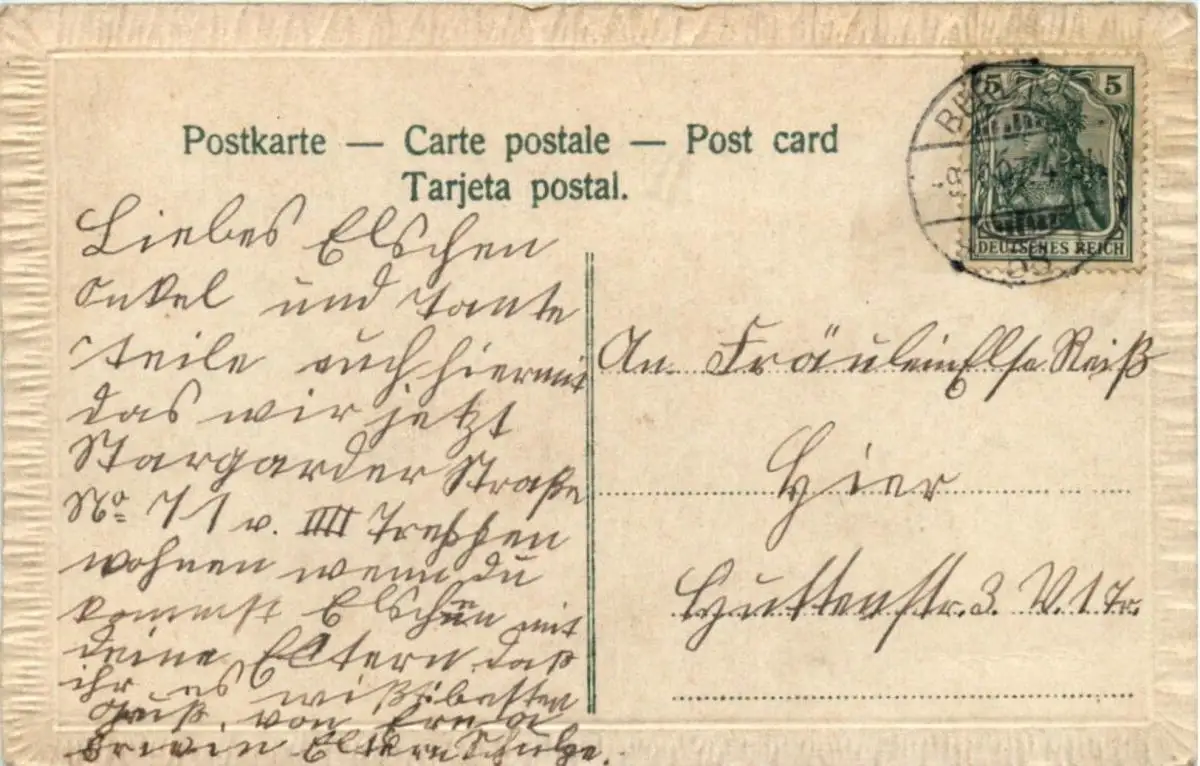 Postkarte — Carte postale — Post card
Tarjeta postal.
5 5
DEUTSCHES REICH
Liebes Elschen
Onkel und Tante
teile euch hiermit
das wir jetzt
Stargarder Straße
No 71 v. IIII Treppen
wohnen wenn du
kommst Elschen mit
deine Eltern daß
ihr es wißt besten
Gruß. von
Erwin Eltern Schulze.
An Fräulein Else Reiß
Hier
Huttenstr. 3. V. 1 Tr.